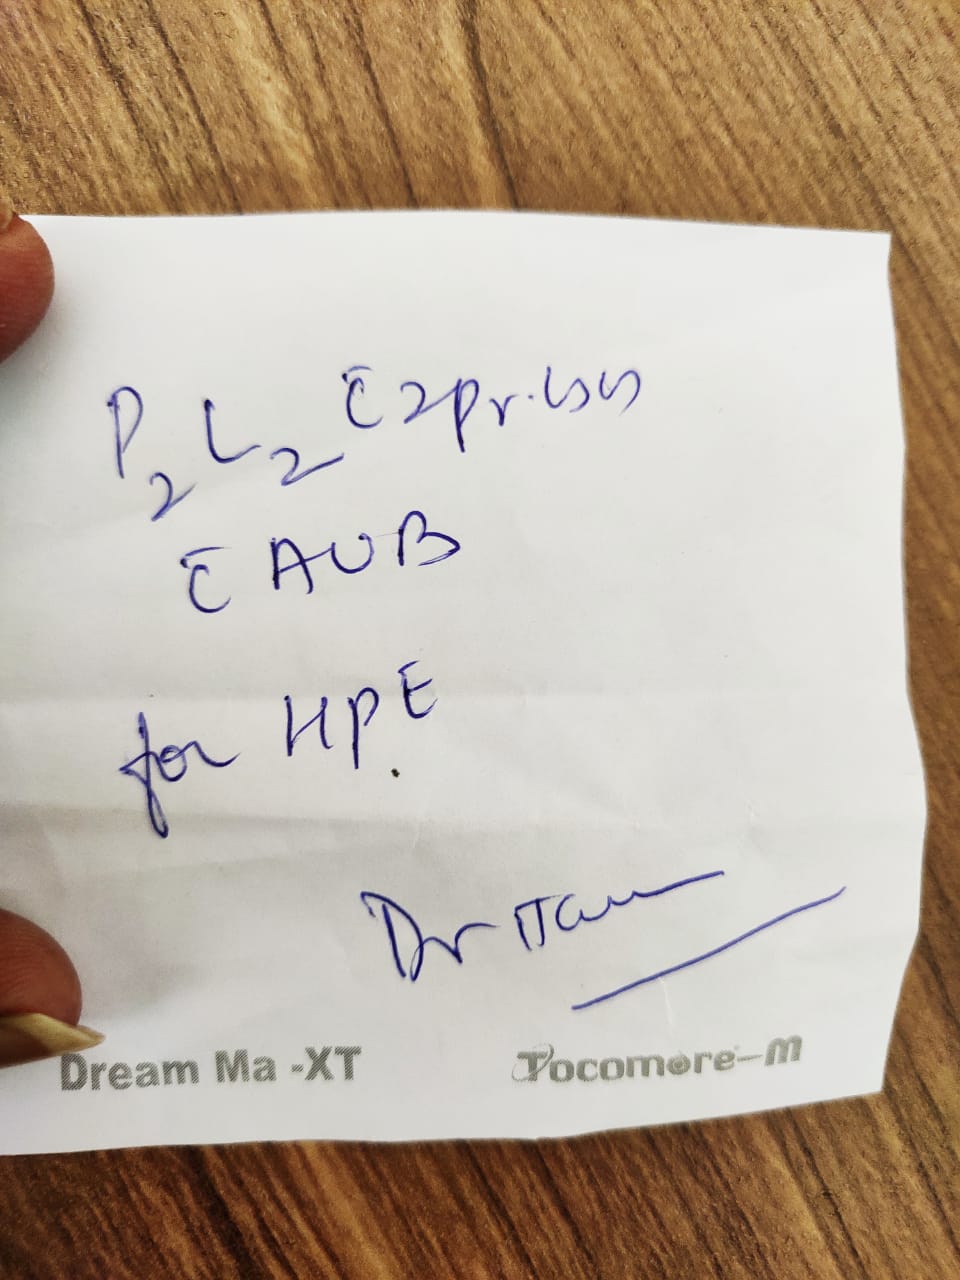 P2 L2 c̄ 2 pr. issues
c̄ AUB
for HPE
Dr
Dream Ma -XT
Tocomore-M